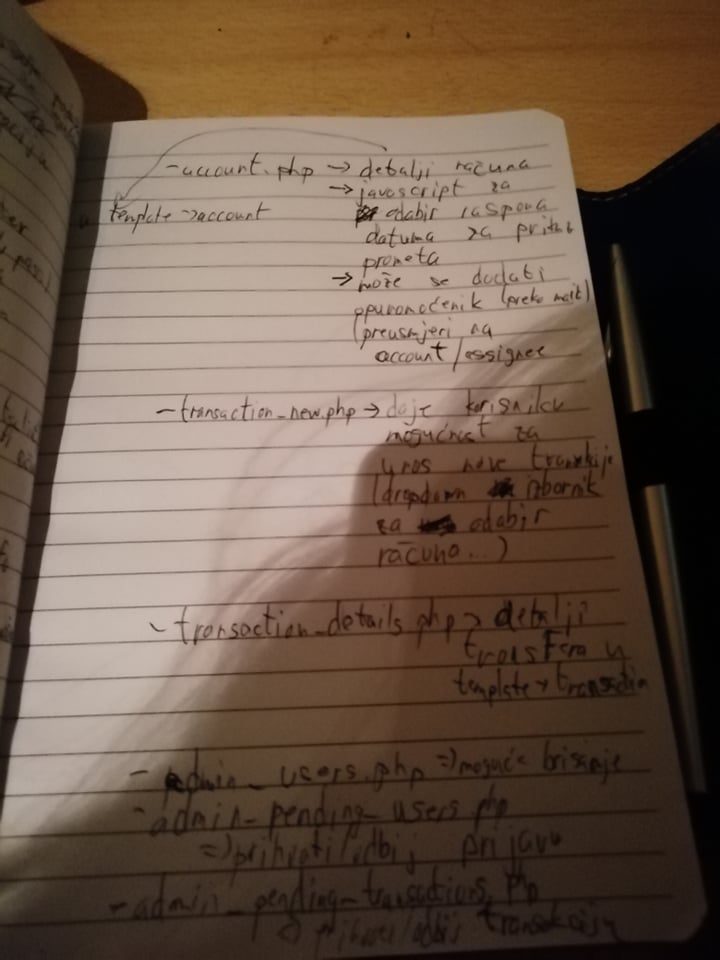 -account.php → detalji računa
→ javascript za
template → account
odabir raspona
datuma za prikaz
prometa
→ može se dodati
opunomoćenik (preko mail)
(preusmjeri na
account/assignee
-transaction_new.php → daje korisniku
mogućnost za
unos nove transakcije
(dropdown izbornik
za odabir
računa...)
- transaction_details.php → detalji
transfera u
template → transaction
- admin_users.php => moguće brisanje
- admin_pending_users.php
=> prihvati/odbij prijavu
- admin_pending_transactions.php
=> odbij transakciju